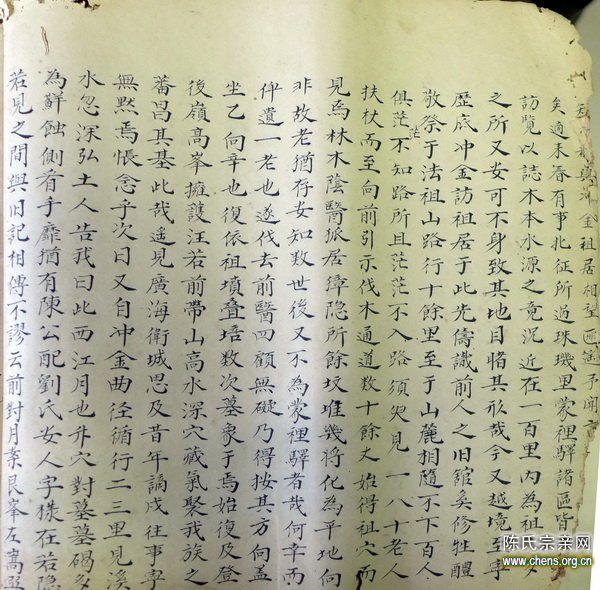 祖居相望匪遙予聞
矣適未春有事北征所過珠璣里蒙裡驛諸區皆
訪覽以誌木本水源之意況近在一百里內為祖
之所又安可不身致其地目睹其形哉今又越境至寧
歷底冲金訪祖居于此先儒識前人之旧館矣修牲醴
敬祭于法祖山路行十餘里至于山麓相隨不下百人
俱茫茫不知路所且茫茫不入路須臾見一八十老人
扶杖而至向前引示伐木通道数十餘丈始得祖穴而
見焉林木陰翳狐居獐隐所餘坟堆幾將化為平地向
非故老猶存安知数世後又不為蒙裡驛者哉何幸而
俾遺一老也遂伐去前翳四顧無礙乃得按其方向盖
坐乙向辛也復依祖墳疊培数次墓象于焉始復及登
後嶺高峯擁護汪若前帶山高水深穴藏氣聚我族之
蕃昌其基此哉遥見廣海衛城思及昔年謫戍徃事寧
無黙焉悵念乎次日又自冲金曲径循行二三里見溪
水忽深弘土人告我曰此西江月也升穴對墓墓碣多
為蘚蝕側看乎靡猶有陳公配劉氏安人字樣在若隐
若見之間與旧記相傳不謬云前對月案艮峯左嵩
陈氏宗亲网
www.chens.org.cn